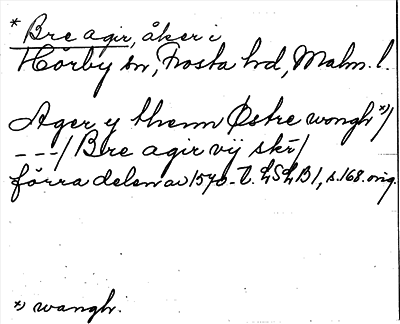 * Bre agir, åker i
Hörby sn, Frosta hd, Malm. l.
Ager y thenn Østre wongh *)/
---/ Bre agir vij skr̄/
förra delen av 1570-t. LSLB1, s.168. orig.
*) wangh.